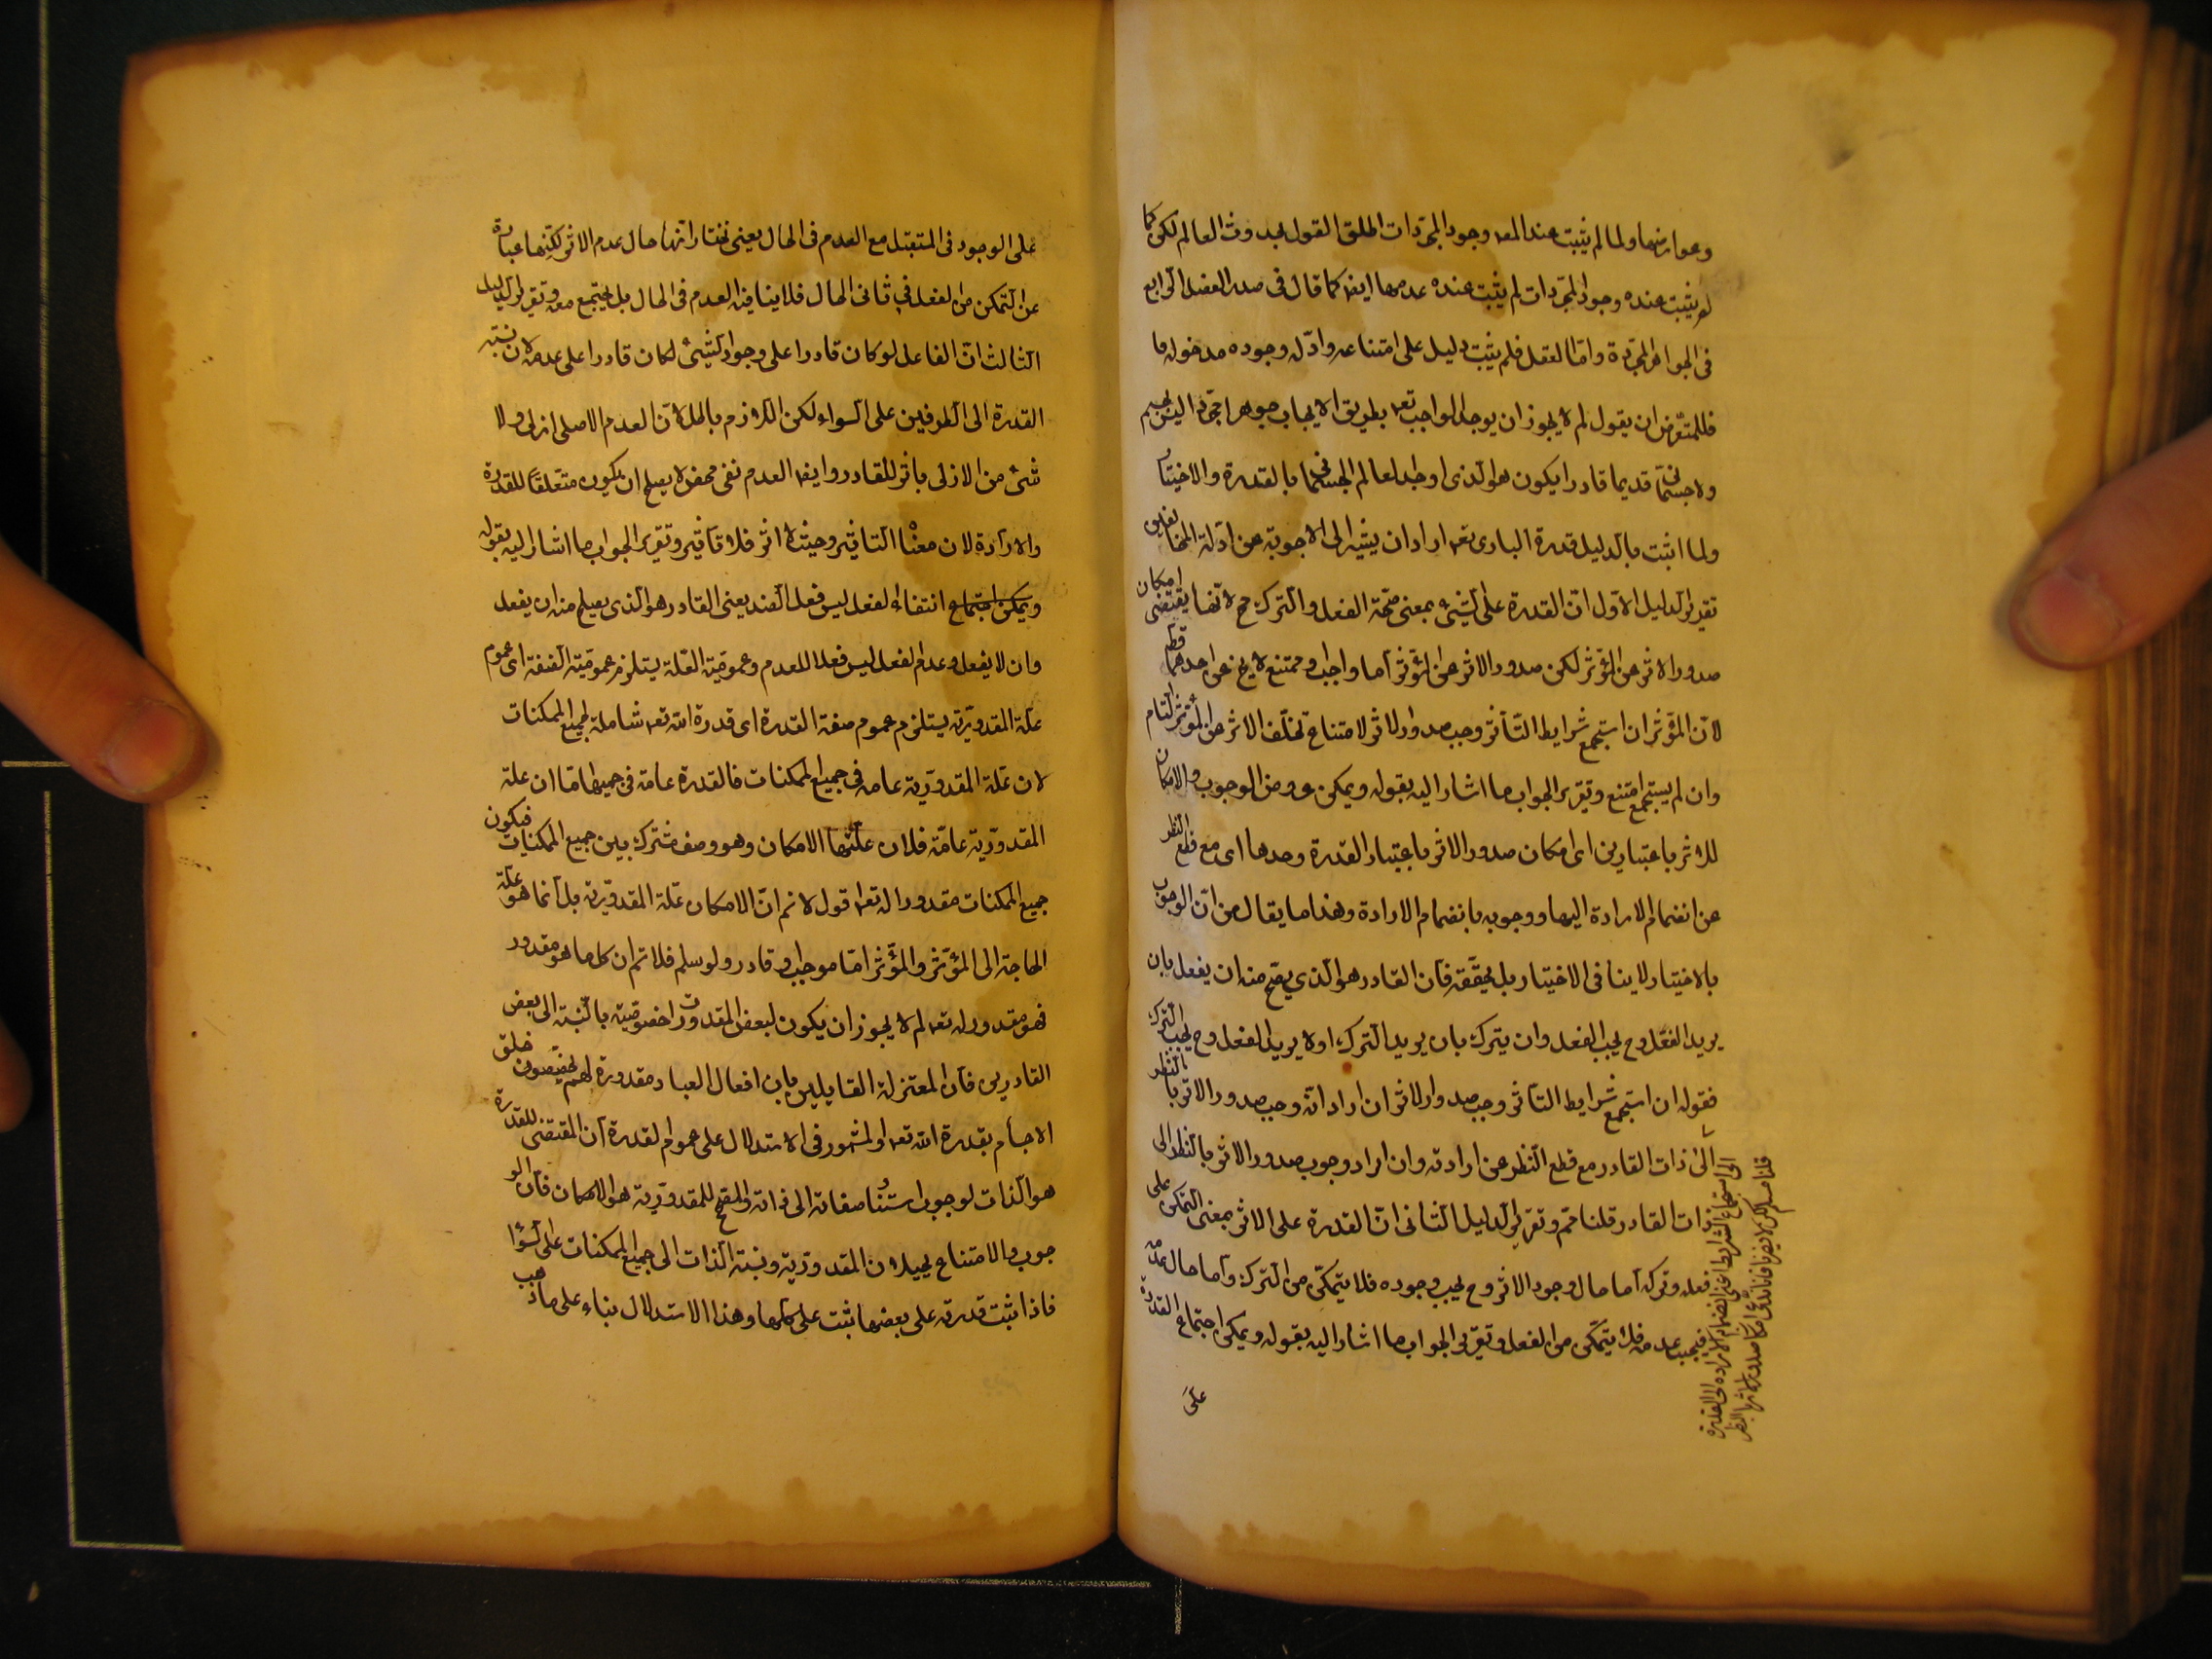 وعوارضها ولما لم يثبت عند المصـ وجود المجردات اطلق القول بحدوث العالم لكن كما
لم يثبت عنده وجود المجردات لم يثبت عنده عدمها ايضا كما قال في صدر الفصل الرابع
في الجواهر المجردة واما العقل فلم يثبت دليل على امتناعه وادلة وجوده مدخولة ما
فللمتعرض ان يقول لم لا يجوز ان يوجد الواجب تعـ بطريق الايجاب جوهرا مجردا ليس بجسم
ولا جسماني قديما قادرا يكون هو الذي اوجد العالم الجسماني بالقدرة والاختيار
ولما اثبت بالدليل قدرة الباري تعـ اراد ان يشير الى الاجوبة عن ادلة المخالفين
تقرير الدليل الاول ان القدرة على الشيء بمعنى صحة الفعل والترك مح لانها يقتضي امكان
صدور الاثر عن المؤثر لكن صدور الاثر عن المؤثر اما واجب او ممتنع لا يخ عن احدهما قطعا
لان المؤثر ان استجمع شرايط التأثر وجب صدور الاثر لامتناع تخلف الاثر عن المؤثر التام
وان لم يستجمع امتنع وتقرير الجواب ما اشار اليه بقوله ويمكن عروض الوجوب والامكان
للاثر باعتبارين اى امكان صدور الاثر باعتبار القدرة وحدها اى مع قطع النظر
عن انضمام الارادة اليها ووجوبه بانضمام الارادة وهذا ما يقال من ان الوجوب
بالاختيار لا ينافى الاختيار بل يحققه فان القادر هو الذي يصح منه ان يفعل بان
يريد الفعل وح يجب الفعل وان يترك بان يريد الترك او لا يريد الفعل وح يجب الترك
فقوله ان استجمع شرايط التأثر وجب صدور الاثر ان اراد انه وجب صدور الاثر بالنظر
الى ذات القادر مع قطع النظر عن ارادته وان اراد وجوب صدور الاثر بالنظر الى
ذات القادر قلنا مم وتقرير الدليل الثانى ان القدرة على الاثر بمعنى التمكن على
فعله وتركه اما حال وجود الاثر وح يجب وجوده فلا يتمكن من الترك واما حال عدمه
فيجب عدمه فلا يتمكن من الفعل وتقرير الجواب ما اشار اليه بقوله ويمكن اجتماع القدرة
على
الى استجماع الشرايط اعنى انضمام الارادة الى القدرة
قلنا مسلم لكن لا يضرنا فانا ندعى امكان صدور الاثر بالنظر
على الوجود فى المستقبل مع العدم فى الحال يعنى نختار انها حال عدم الاثر لكنها عبارة
عن التمكن من الفعل في ثانى الحال فلا ينافيه العدم فى الحال بل يجتمع معه وتقرير الدليل
الثالث ان الفاعل لو كان قادرا على وجود الشئ لكان قادرا على عدمه لان نسبة
القدرة الى الطرفين على السواء لكن اللازم باطل لان العدم الاصلى ازلى ولا
شئ من الازلى باثر للقادر وايضا العدم نفى محض لا يصلح ان يكون متعلقا للقدرة
والارادة لان معناه التاثير وحيث لا اثر فلا تأثير وتقرير الجواب ما اشار اليه بقوله
ويمكن اجتماع انتفاء الفعل ليس فعل الضد يعنى القادر هو الذى يصلح منه ان يفعل
وان لا يفعل وعدم الفعل ليس فعل العدم وعمومية العلة يستلزم عمومية الصفة اى عموم
علة المقدورية يستلزم عموم صفة القدرة اى قدرة الله تعـ شاملة لجميع الممكنات
لان علة المقدورية عامة فى جميع الممكنات فالقدرة عامة فى جميعها اما ان علة
المقدورية عامة فلان علتها الامكان وهو وصف مشترك بين جميع الممكنات فيكون
جميع الممكنات مقدورا له تعـ اقول لا نم ان الامكان علة المقدورية بل انما هو علة
الحاجة الى المؤثر والمؤثر اما موجب او قادر ولو سلم فلا نم ان كل ما هو مقدور
فهو مقدور له تعـ لم لا يجوز ان يكون لبعض المقدورات خصوصية بالنسبة الى بعض
القادرين فان المعتزلة القايلين بان افعال العباد مقدورة لهم يخصصون خلق
الاجسام بقدرة الله تعـ والمشهور فى الاستدلال على عموم القدرة ان المقتضى للقدرة
هو الذات لوجوب استناد صفاته الى ذاته والمصحح للمقدورية هو الامكان فان الو
جوب والامتناع يحيلان المقدورية ونسبة الذات الى جميع الممكنات على السواء
فاذا ثبت قدرته على بعضها ثبت على كلها وهذا الاستدلال بناء على ما ذهب